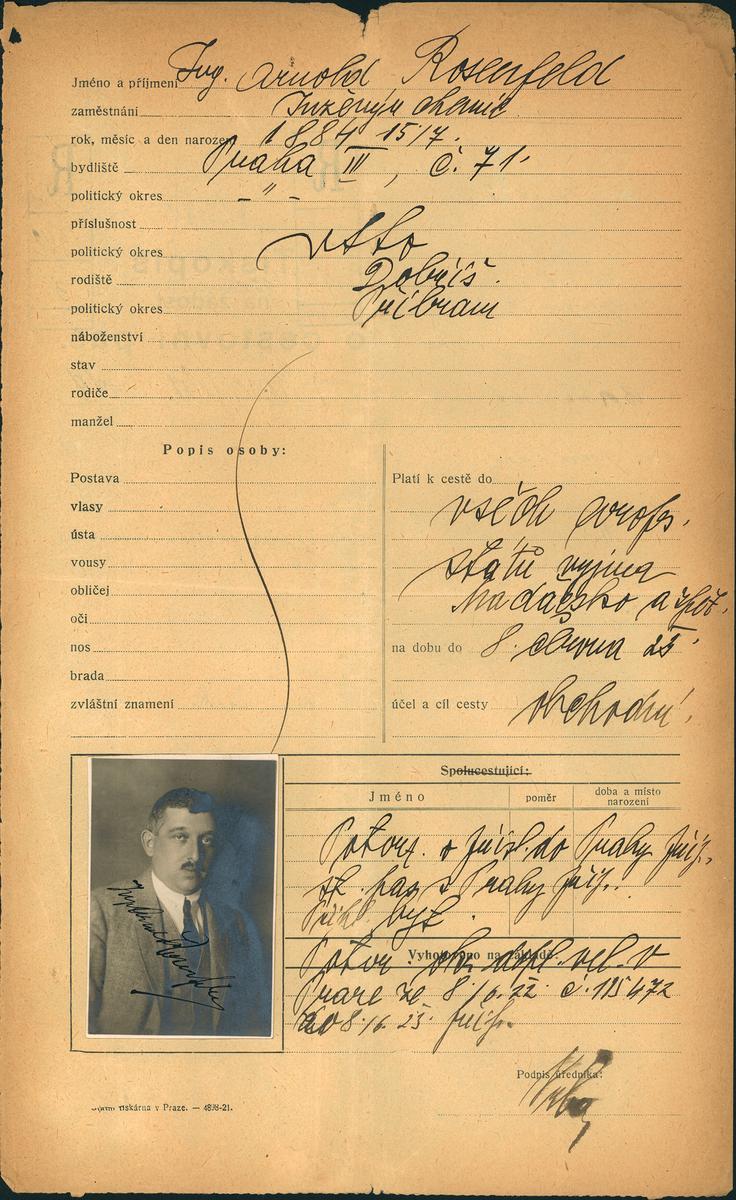 Jméno a příjmení Ing. Arnold Rosenfeld
zaměstnání Inženýr chemie
rok, měsíc a den narození 1884 15/7.
bydliště Praha III, č. 71.
politický okres - " -
příslušnost
politický okres
rodiště Dobříš.
politický okres Příbram
náboženství
stav
rodiče
manžel
Popis osoby:
Postava
vlasy
ústa
vousy
obličej
oči
nos
brada
zvláštní znamení
Platí k cestě do
všech evrops.
států vyjma
Maďarsko a
na dobu do 8. června 23.
účel a cíl cesty obchodní.
Spolucestující:
Jméno poměr doba a místo narození
Potvrz. o do Prahy
z Prahy
Vyhotoveno na základě:
Praze ze 8/6.22 č. 115472
do 8./6. 23.
Podpis úředníka:
tiskárna v Praze. — 4898-21.